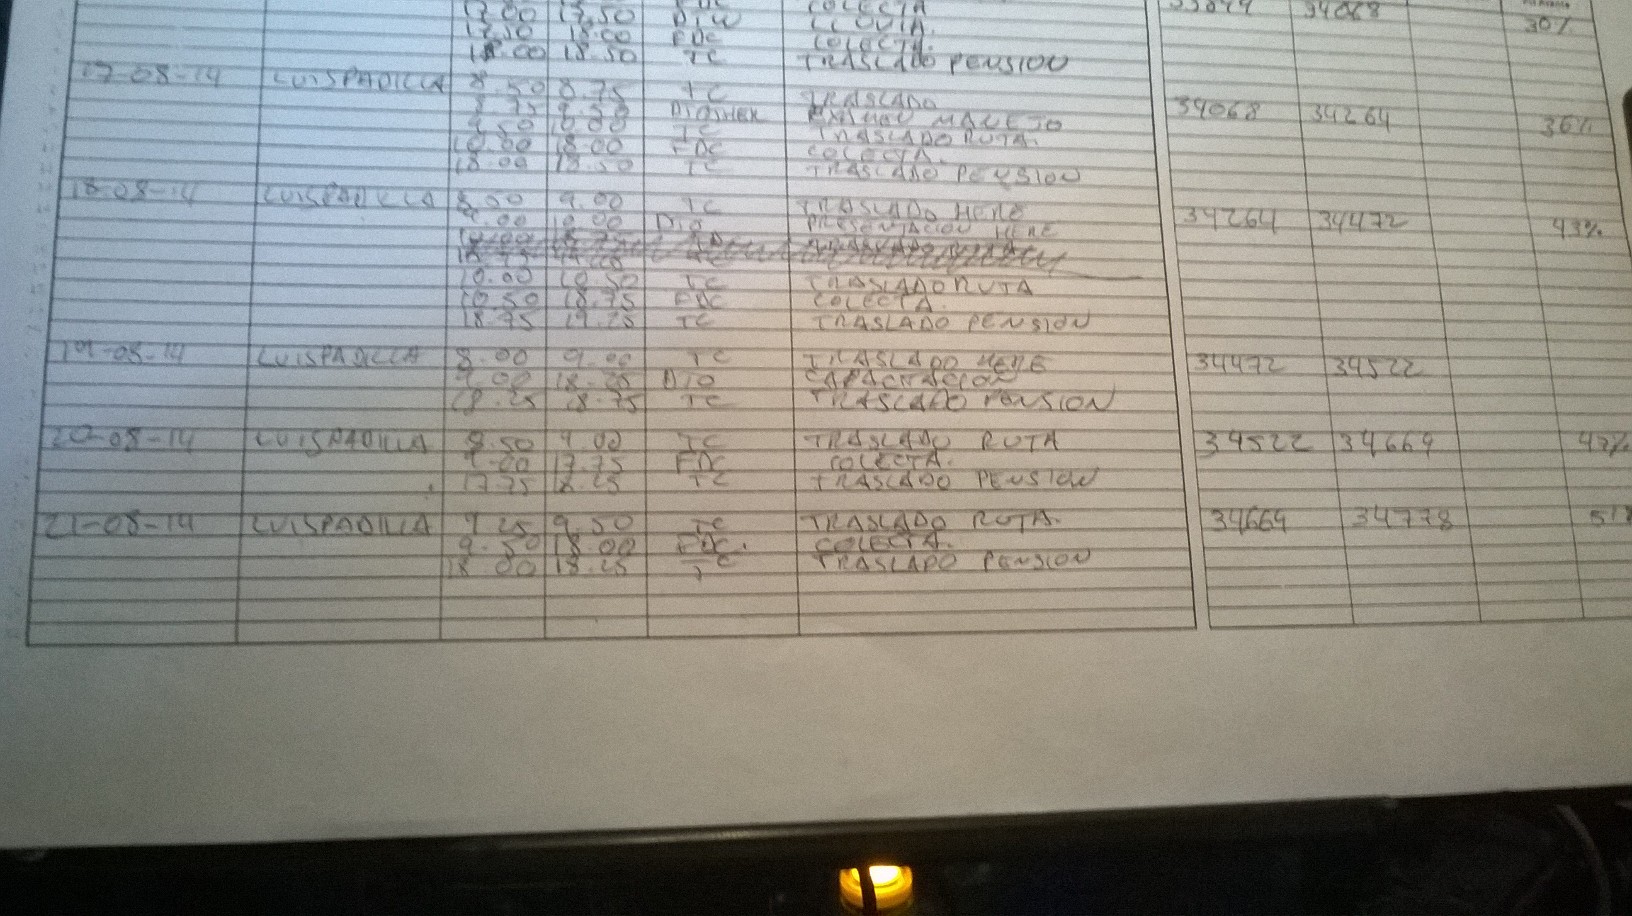 17.00 17.50 COLECTA 33844 34068
17.50 18.00 EDC COLECTA. 30%
18.00 18.50 TC TRASLADO PENSION
17-08-14 LUISPADILLA 8.50 8.75 TC TRASLADO 34068 34264 36%
8.75 9.50
9.50 10.00 TC TRASLADO RUTA.
10.00 18.00 EDC COLECTA.
18.00 18.50 TC TRASLADO PENSION
18-08-14 LUISPADILLA 8.50 9.00 TC TRASLADO HERE 34264 34472 43%
9.00 10.00 DIO PRESENTACION HERE
10.00 10.50 TC TRASLADO RUTA
10.50 18.75 EDC COLECTA.
18.75 19.25 TC TRASLADO PENSION
19-08-14 LUISPADILLA 8.00 9.00 TC TRASLADO HERE 34472 34522
9.00 18.25 DIO CAPACITACION
18.25 18.75 TC TRASLADO PENSION
20-08-14 LUISPADILLA 8.50 9.00 TC TRASLADO RUTA 34522 34669 47%
9.00 17.75 EDC COLECTA.
17.75 18.25 TC TRASLADO PENSION
21-08-14 LUISPADILLA 9.25 9.50 TC TRASLADO RUTA. 34669 34778 51%
9.50 18.00 EDC. COLECTA.
18.00 18.25 TC TRASLADO PENSION